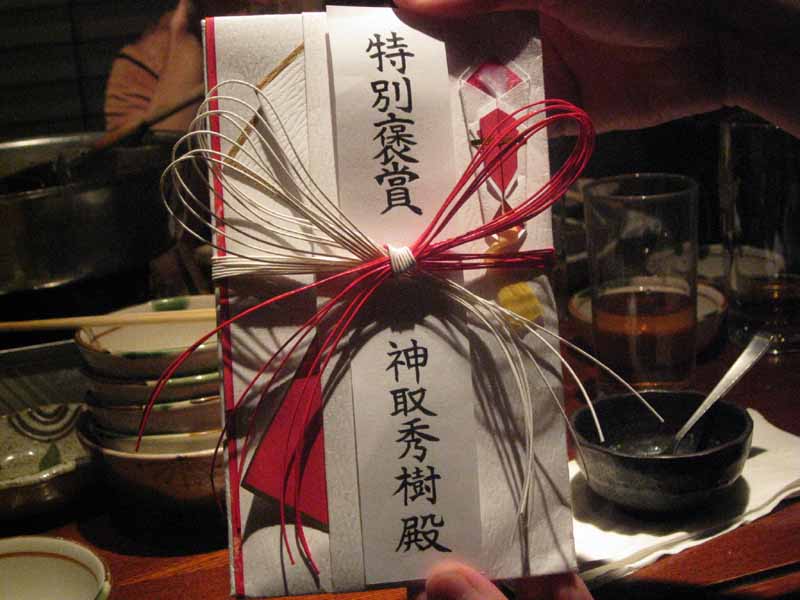 特別褒賞
神取秀樹殿